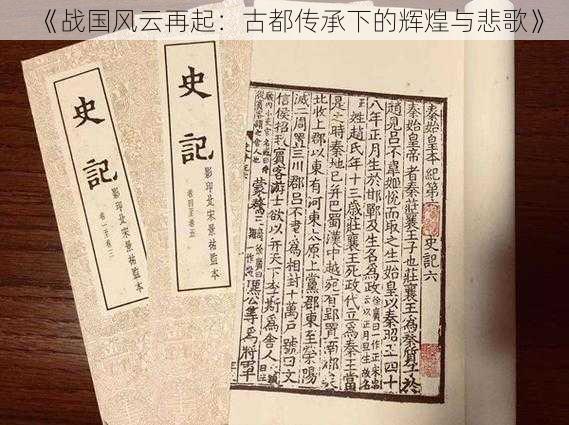 《战国风云再起：古都传承下的辉煌与悲歌》
史記
影印北宋景祐監本
卷一至卷三
史記
影印北宋景祐監本
卷四至卷五
秦始皇本紀第六 史記六
秦始皇帝者秦莊襄王子也莊襄王爲秦質子於
趙見呂不韋姬悅而取之生始皇以秦昭王四十
八年正月生於邯鄲及生名爲政
姓趙氏年十三歲莊襄王死政代立爲秦王當
是之時秦地已并巴蜀漢中越宛有郢置南郡矣
北收上郡以東有河東太原上黨郡東至滎陽
滅二周置三川郡呂不韋爲相封十萬戶號曰文
信侯招致賓客游士欲以并天下李斯爲舍人
蒙驁
公等爲將軍